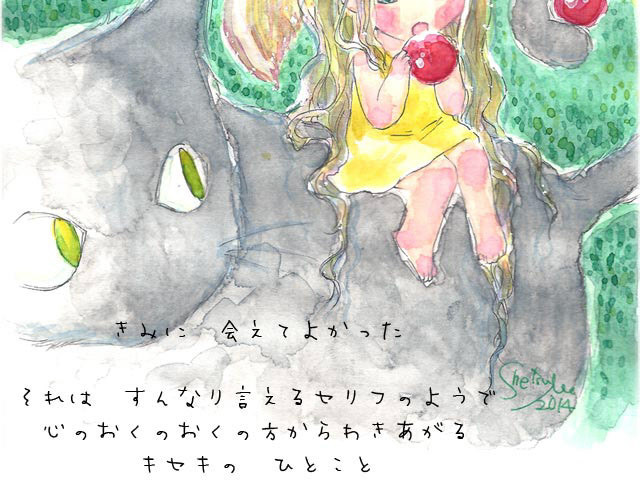 きみに 会えてよかった
それは すんなり言えるセリフのようで
心のおくのおくの方からわきあがる
キセキの ひとこと
2014